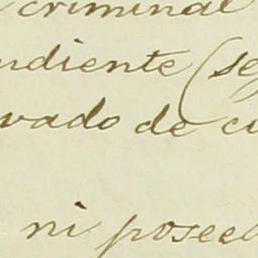 criminal
ndiente (se
vado de c
ni posee